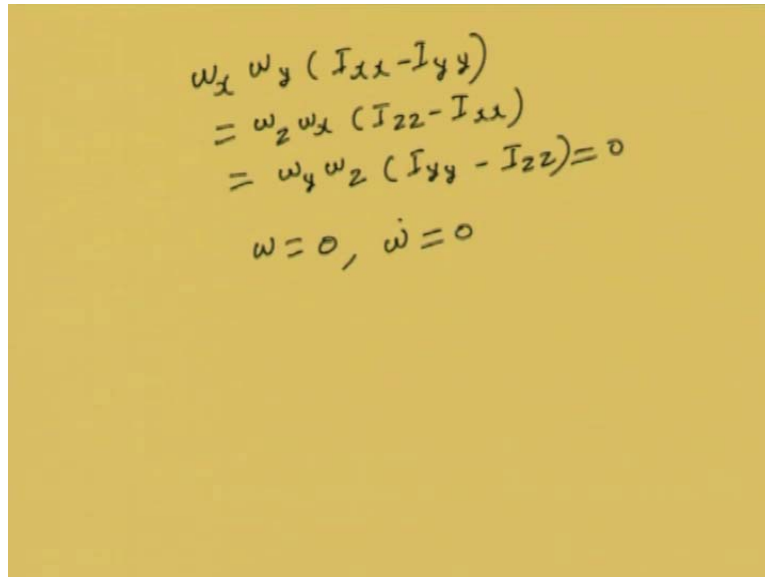 ωx ωy (Ixx-Iyy)
= ωz ωx (Izz-Ixx)
= ωy ωz (Iyy - Izz)=0
ω=0, ω̇=0